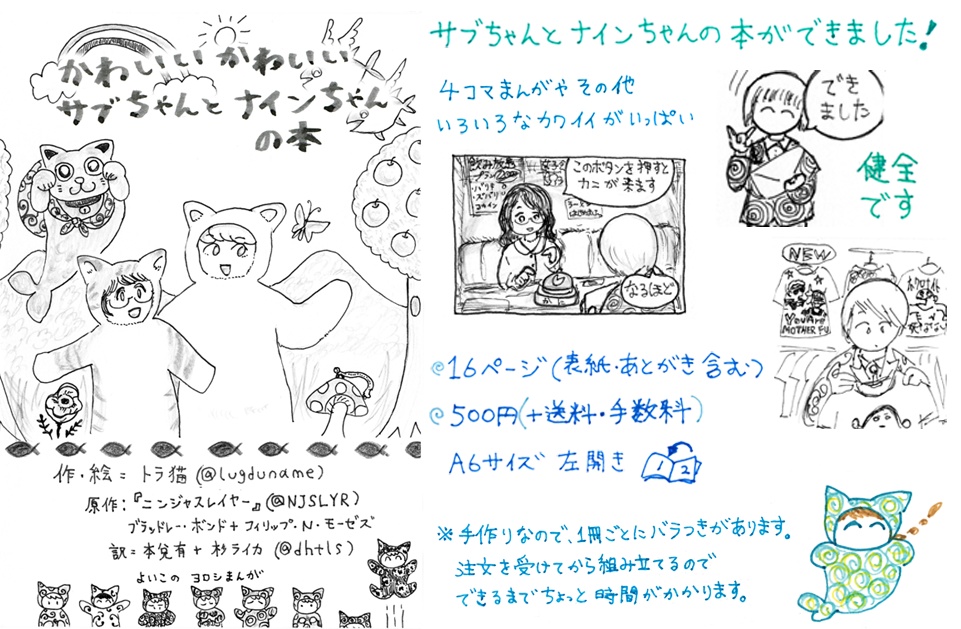 かわいいかわいい
サブちゃんとナインちゃん
の本
作・絵=トラ猫(@lugduname)
原作:『ニンジャスレイヤー』(@NJSLYR)
ブラッドレー・ボンド+フィリップ・N・モーゼズ
訳=本兌有+杉ライカ(@dhtls)
よいこのヨロシまんが
サブちゃんとナインちゃんの本ができました!
4コマまんがやその他
いろいろなカワイイがいっぱい
でき
ました
健全
です
飲み放題
プラン
このボタンを押すと
カニが来ます
なるほど
NEW
You Are
MOTHER FU
@16ページ(表紙・あとがき含む)
@500円(+送料・手数料)
A6サイズ 左開き
1 2
※手作りなので、1冊ごとにバラつきがあります。
注文を受けてから組み立てるので
できるまでちょっと時間がかかります。